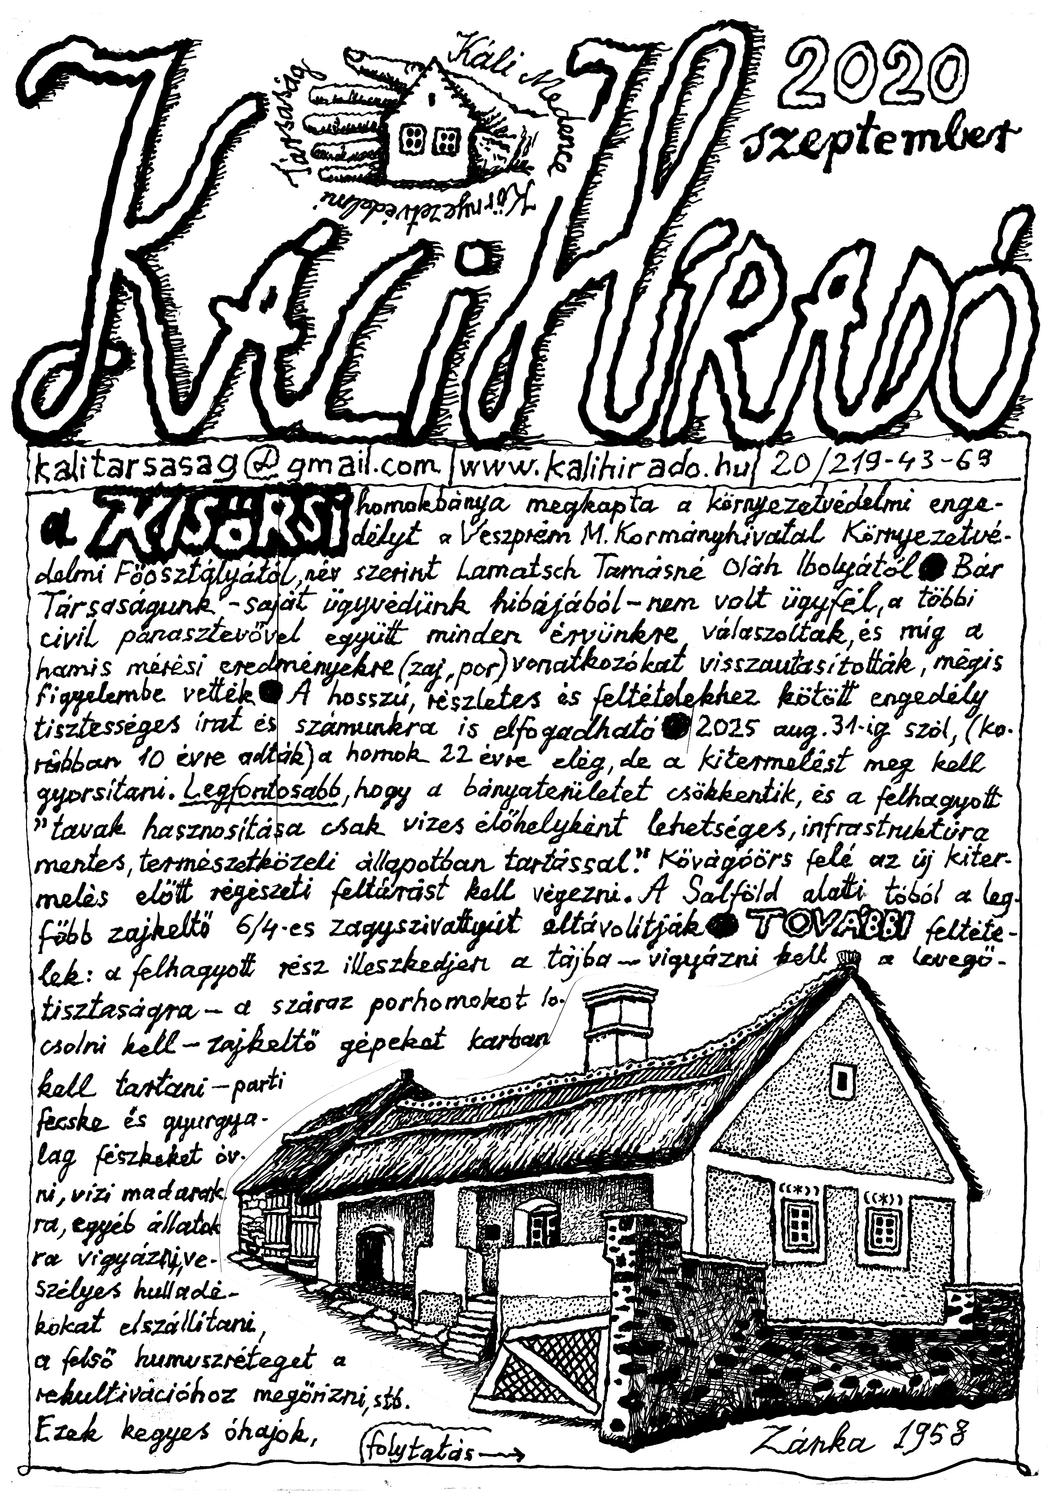 Káli Medence
Környezetvédelmi
Társaság
2020
szeptember
KÁLI HÍRADÓ
kalitarsasag@gmail.com | www.kalihirado.hu | 20/219-43-69
a KISÖRSI homokbánya megkapta a környezetvédelmi enge-
délyt a Veszprém M. Kormányhivatal Környezetvé-
delmi Főosztályától, név szerint Lamatsch Tamásné Oláh Ibolyától ● Bár
Társaságunk - saját ügyvédünk hibájából - nem volt ügyfél, a többi
civil panasztevővel együtt minden érvünkre válaszoltak, és míg a
hamis mérési eredményekre (zaj, por) vonatkozókat visszautasították, mégis
figyelembe vették ● A hosszú, részletes és feltételekhez kötött engedély
tisztességes irat és számunkra is elfogadható ● 2025 aug. 31-ig szól, (ko-
rábban 10 évre adták) a homok 22 évre elég, de a kitermelést meg kell
gyorsítani. Legfontosabb, hogy a bányaterületet csökkentik, és a felhagyott
"tavak hasznosítása csak vizes élőhelyként lehetséges, infrastruktúra
mentes, természetközeli állapotban tartással." Kővágóörs felé az új kiter-
melés előtt régészeti feltárást kell végezni. A Salföld alatti tóból a leg-
főbb zajkeltő 6/4-es zagyszivattyút eltávolítják ● TOVÁBBI feltéte-
lek: a felhagyott rész illeszkedjen a tájba - vigyázni kell a levegő-
tisztaságra - a száraz porhomokot lo-
csolni kell - zajkeltő gépeket karban
kell tartani - parti
fecske és gyurgya-
lag fészkeket óv-
ni, vizi madarak
ra, egyéb állatok
ra vigyázni, ve-
szélyes hulladé-
kokat elszállítani,
a felső humuszréteget a
rekultivációhoz megőrizni, stb.
Ezek kegyes óhajok,
folytatás →
Zánka 1958